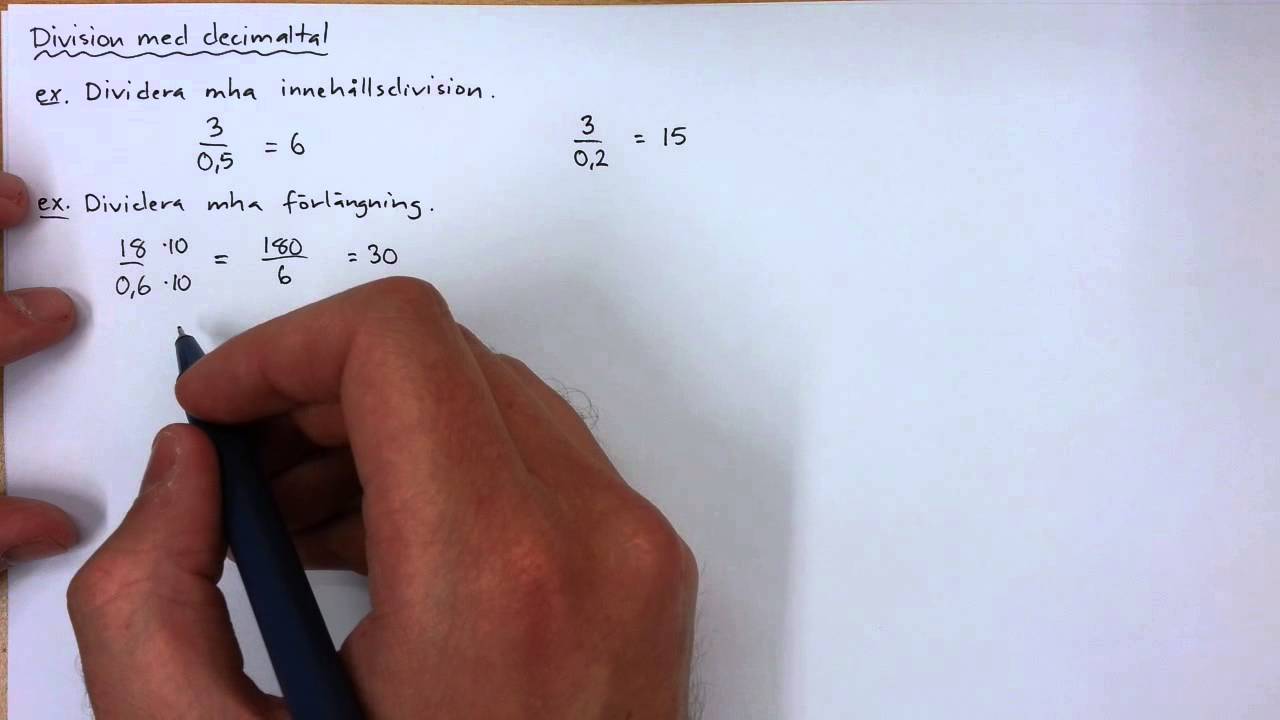 Division med decimaltal
ex. Dividera mha innehållsdivision.
3/0,5 = 6    3/0,2 = 15
ex. Dividera mha förlängning.
18 ·10/0,6 ·10 = 180/6 = 30